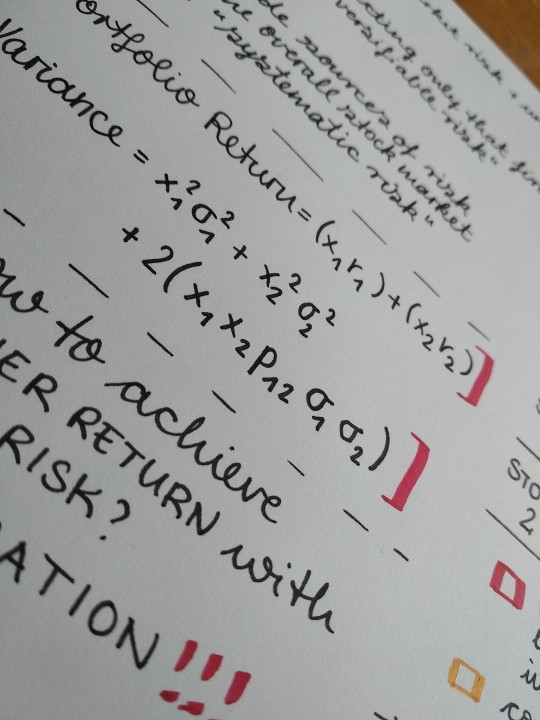 risk +
cting only that
versifiable risk"
sources of risk
overall stock market
"systematic risk"
Portfolio Return = (x₁r₁) + (x₂r₂)]
Variance = x₁²σ₁² + x₂²σ₂²
+ 2(x₁x₂ρ₁₂σ₁σ₂)]
ow to achieve
ER RETURN with
RISK?
ATION!!!
STO
2